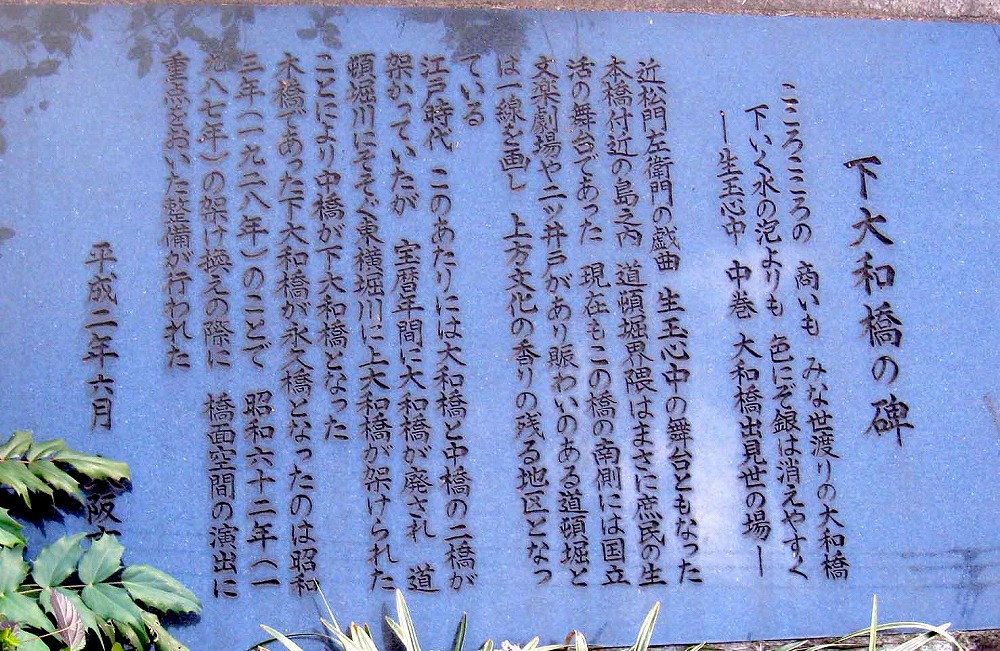 下大和橋の碑
こころこころの 商いも みな世渡りの大和橋
下いく水の泡よりも 色にぞ銀は消えやすく
―生玉心中 中巻 大和橋出見世の場―
近松門左衛門の戯曲 生玉心中の舞台ともなった
本橋付近の島之内 道頓堀界隈はまさに庶民の生
活の舞台であった 現在もこの橋の南側には国立
文楽劇場や二ッ井戸があり賑わいのある道頓堀と
は一線を画し 上方文化の香りの残る地区となっ
ている
江戸時代 このあたりには大和橋と中橋の二橋が
架かっていたが 宝暦年間に大和橋が廃され 道
頓堀川にそそぐ東横堀川に上大和橋が架けられた
ことにより中橋が下大和橋となった
木橋であった下大和橋が永久橋となったのは昭和
三年(一九二八年)のことで 昭和六十二年(一
九八七年)の架け換えの際に 橋面空間の演出に
重点をおいた整備が行われた
平成二年六月 阪